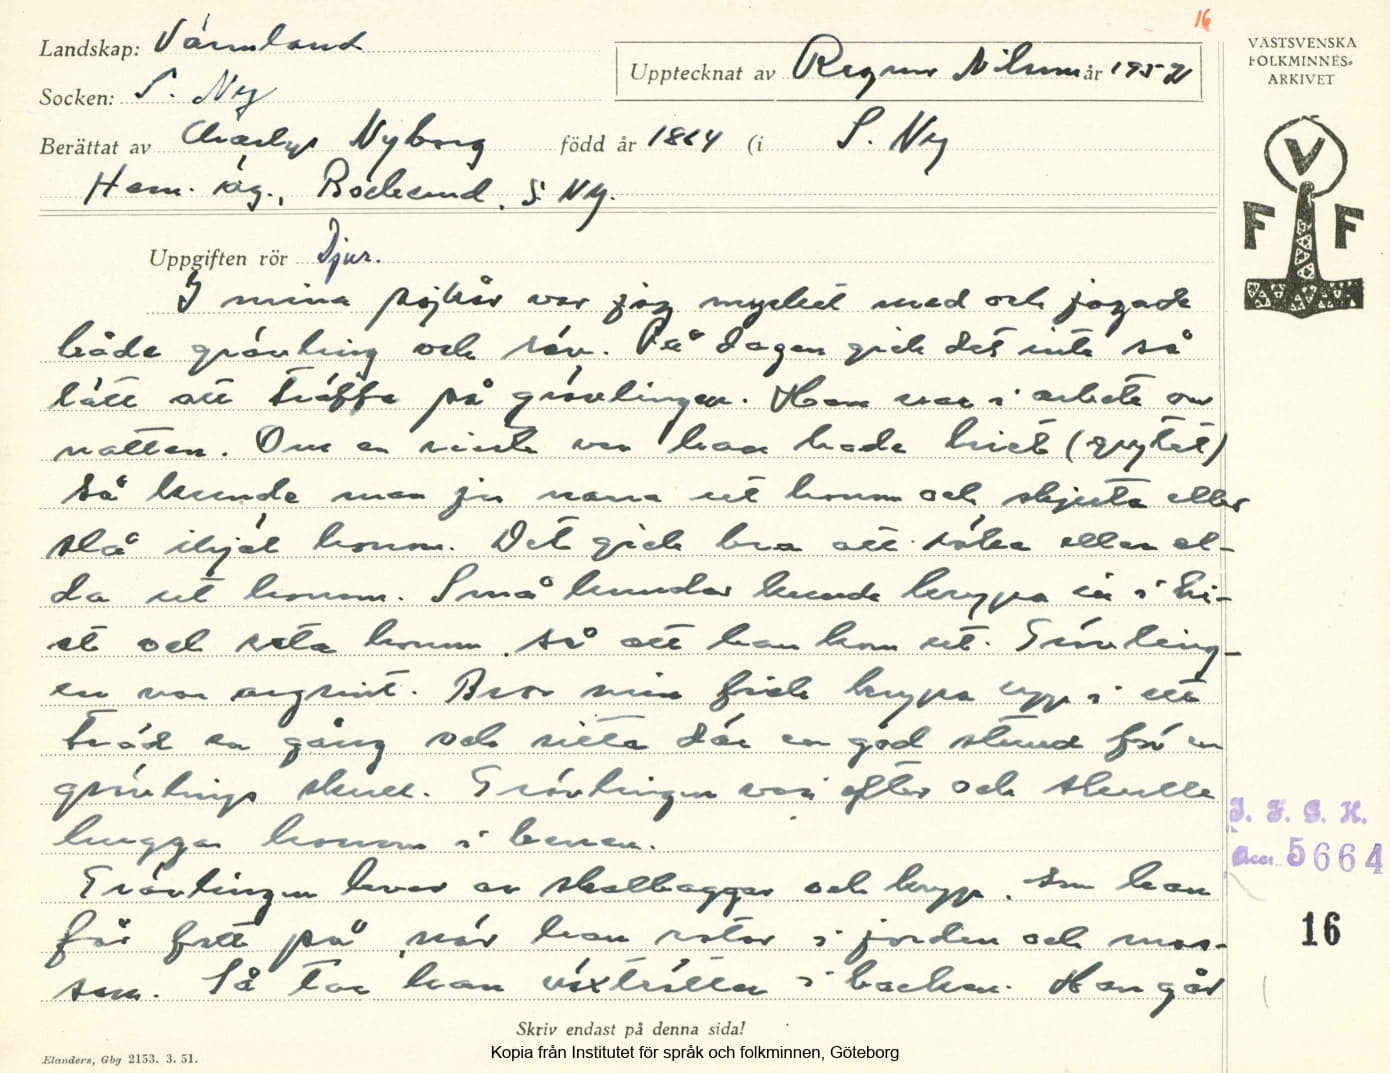 16
Landskap: Värmland
Socken: S. Ny
Upptecknat av Ragnar Nilsson år 1952
VÄSTSVENSKA
FOLKMINNES-
ARKIVET
Berättat av Charly Nyborg född år 1864 (i S. Ny
Hem. äg., S. Ny.
V
F F
Uppgiften rör Djur.
I mina pojkår var jag mycket med och jagade
både grävling och räv. På dagen gick det inte så
lätt att träffa på grävlingen. Han var i arbete om
natten. Om en visste var han hade hiet (grytet)
så kunde man ju vara ut honom och skjuta eller
slå ihjäl honom. Det gick bra att röka eller el-
da ut honom. Små hundar kunde krypa in i hi-
et och reta honom, så att han kom ut. Grävling-
en var argsint. Bror min fick krypa upp i ett
träd en gång och sitta där en god stund för en
grävlings skull. Grävlingen var efter och skulle
hugga honom i benen.
Grävlingen lever av skalbaggar och kryp, som han
får fatt på, när han rotar i jorden och mos-
sen. Så tar han växtrötter i backen. Han går
I. F. G. H.
Acc. 5664
16
Skriv endast på denna sida!
Elanders, Gbg 2153. 3. 51.
Kopia från Institutet för språk och folkminnen, Göteborg